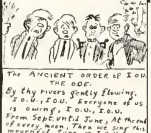 The ANCIENT ORDER of I.O.U.
THE ODE.
By thy rivers gently flowing,
I.O.U., I.O.U. Everyone of us
is owing, I.O.U., I.O.U.
From Sept. until June, At the end
of every moon, Then we sing this